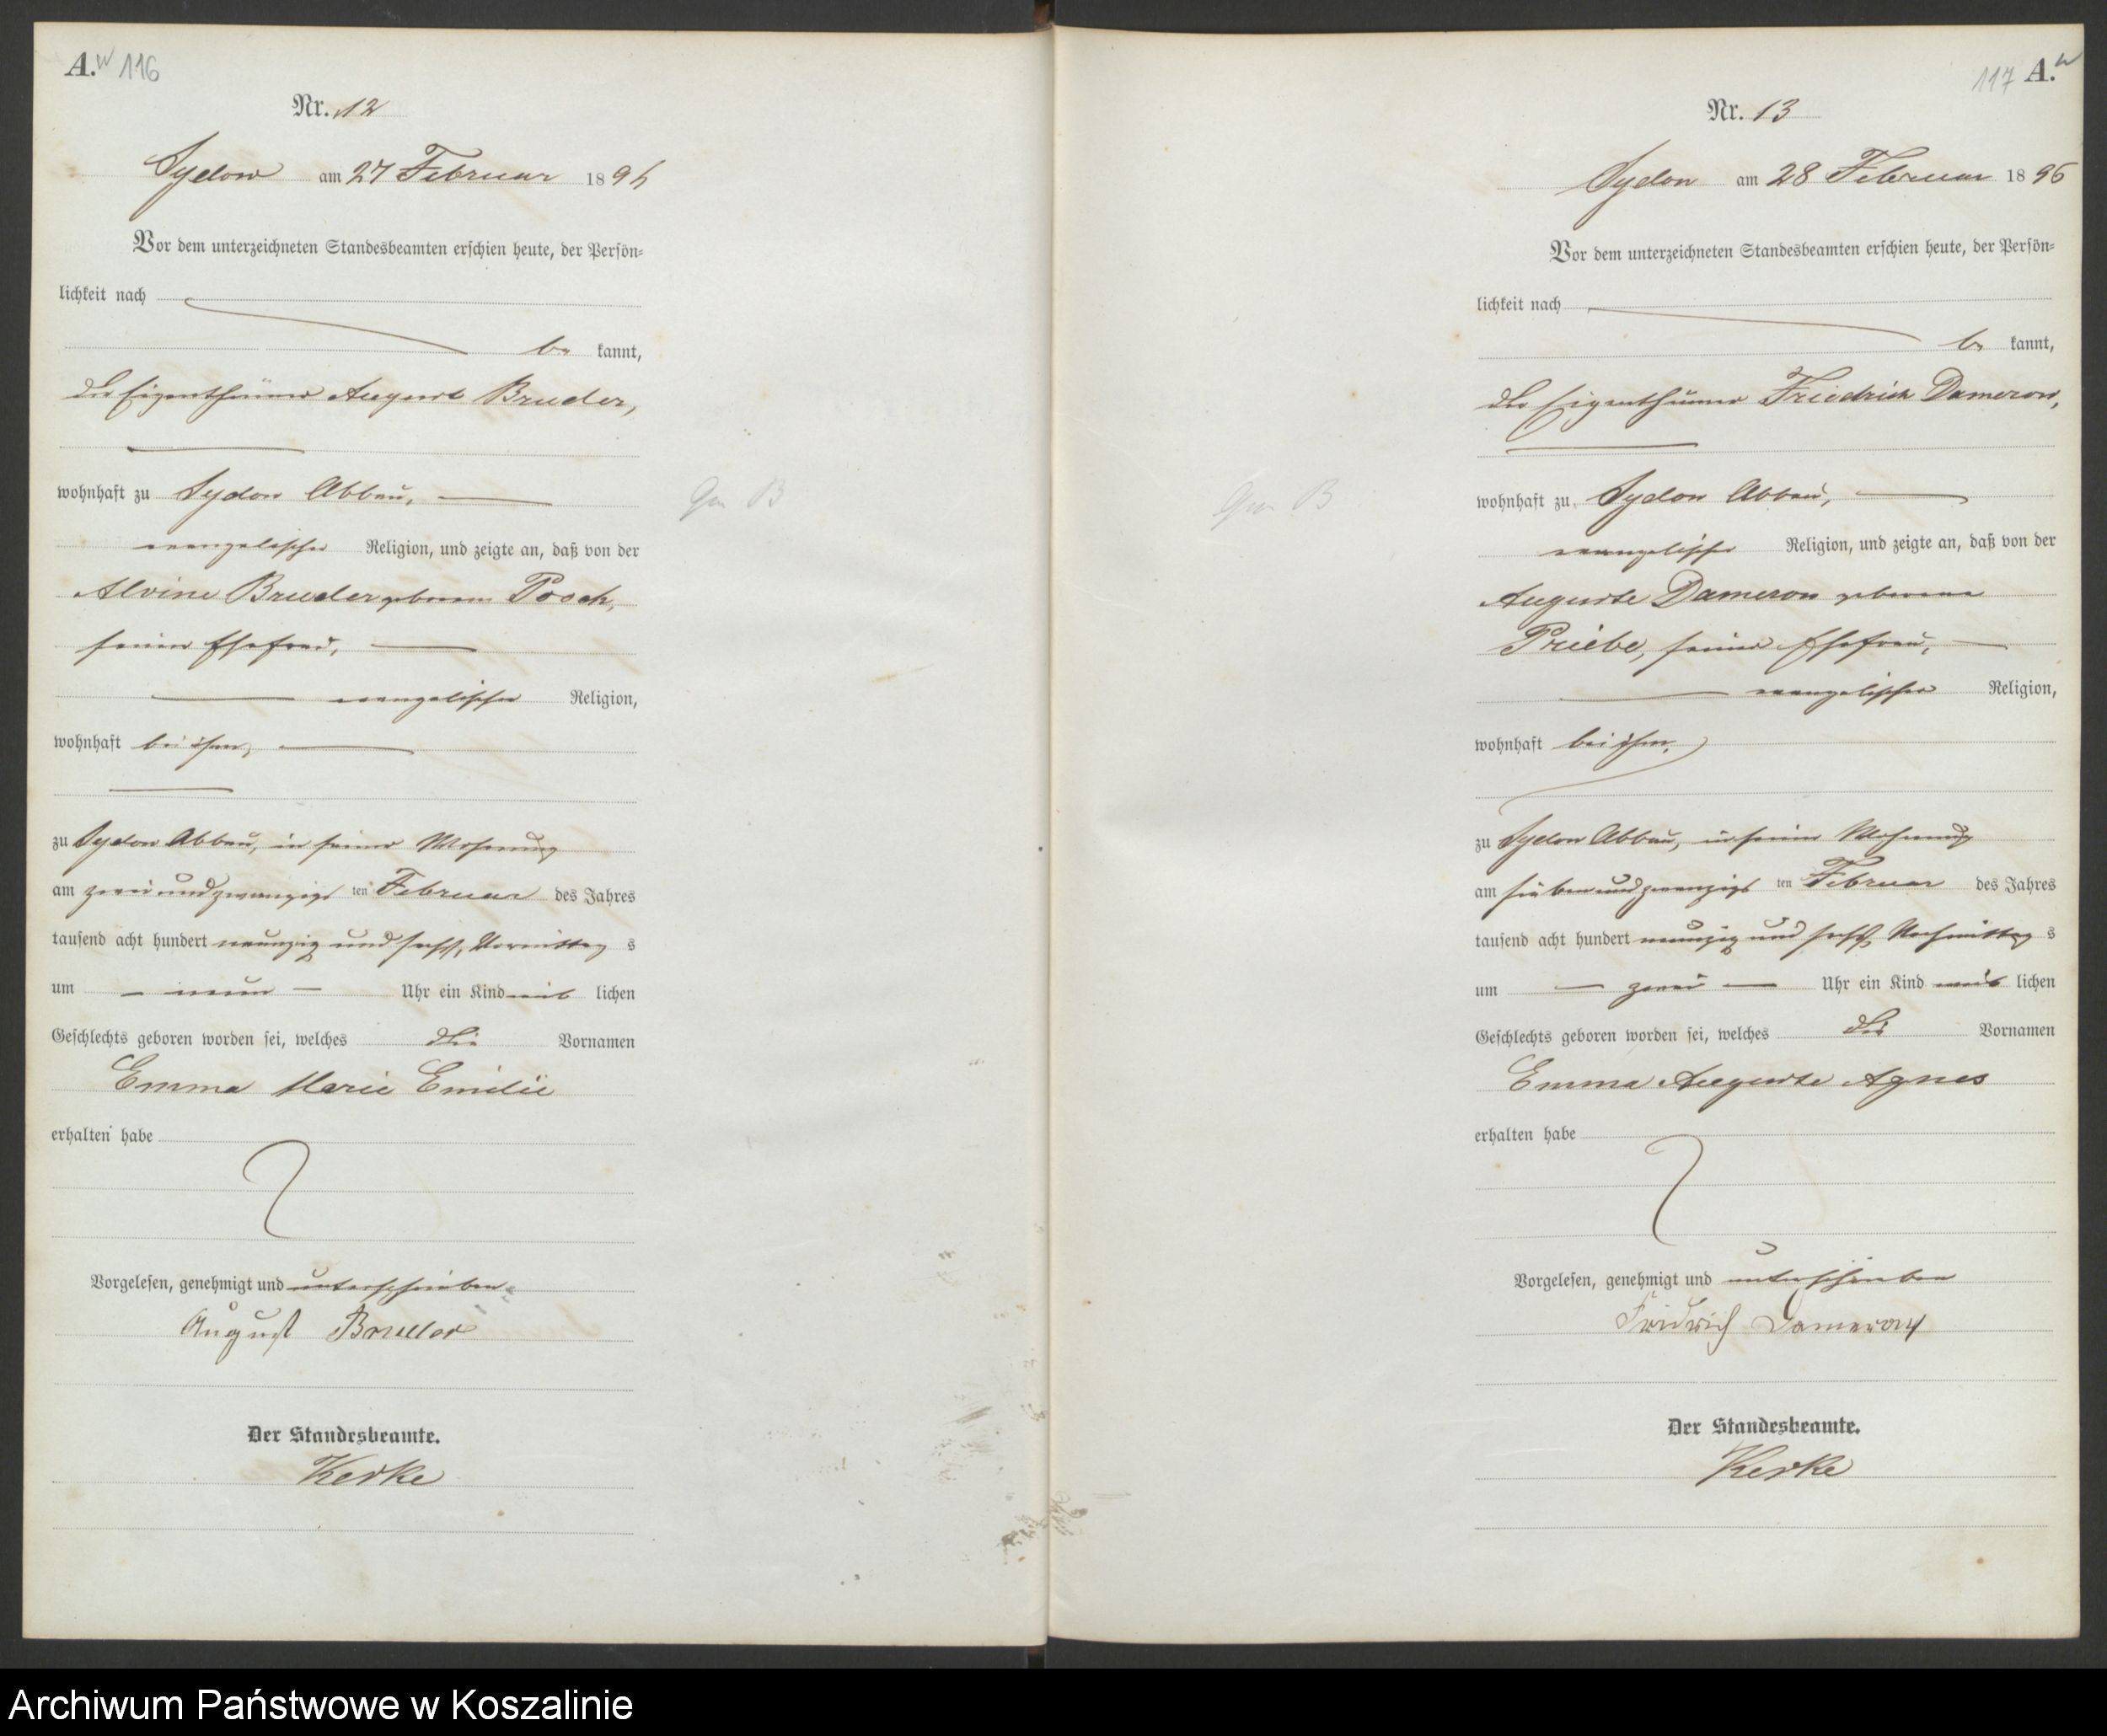 A. 116
Nr. 12
Sydow am 27 Februar 1896
Vor dem unterzeichneten Standesbeamten erschien heute, der Persön=
lichkeit nach
be kannt,
der Eigenthümer August Bruder,
wohnhaft zu Sydow Abbau,
evangelischer Religion, und zeigte an, daß von der
Alvine Bruder geborene Posch,
seiner Ehefrau,
evangelischer Religion,
wohnhaft bei ihm,
zu Sydow Abbau, in seiner Wohnung
am zwei und zwanzigs ten Februar des Jahres
tausend acht hundert neunzig und sechs, Vormittag s
um neun Uhr ein Kind weib lichen
Geschlechts geboren worden sei, welches die Vornamen
Emma Marie Emilie
erhalten habe
Vorgelesen, genehmigt und unterschrieben
August Bruder
Der Standesbeamte.
Kerke
B
117 A.
Nr. 13
Sydow am 28 Februar 1896
Vor dem unterzeichneten Standesbeamten erschien heute, der Persön=
lichkeit nach
be kannt,
der Eigenthümer Friedrich Dameron,
wohnhaft zu Sydow Abbau,
evangelischer Religion, und zeigte an, daß von der
Auguste Dameron geborene
Priebe, seiner Ehefrau,
evangelischer Religion,
wohnhaft bei ihm,
zu Sydow Abbau, in seiner Wohnung
am sieben und zwanzigs ten Februar des Jahres
tausend acht hundert neunzig und sechs, Nachmittag s
um zwei Uhr ein Kind weib lichen
Geschlechts geboren worden sei, welches die Vornamen
Emma Auguste Agnes
erhalten habe
Vorgelesen, genehmigt und unterschrieben
Fridrich Dameron
Der Standesbeamte.
Kerke
B
Archiwum Państwowe w Koszalinie